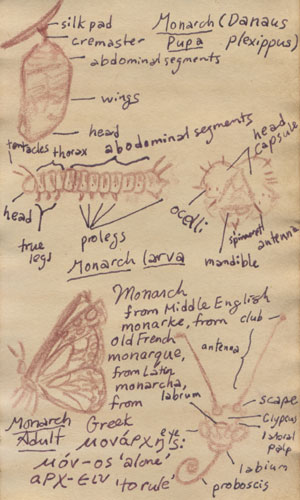 silk pad
cremaster
abdominal segments
Monarch (Danaus
Pupa plexippus)
wings
head
tentacles
thorax
abodominal segments
head
capsule
head
true
legs
prolegs
ocelli
spinneret
antenna
mandible
Monarch larva
Monarch
from Middle English
monarke, from
old French
monargue,
from Latin
monarcha,
from
club
antenna
labrum
eye
scape
clypeus
labial
palp
labium
proboscis
Monarch
Adult
Greek
μονάρχης:
μόν-os 'alone'
ἄρχ-ειν 'to rule'